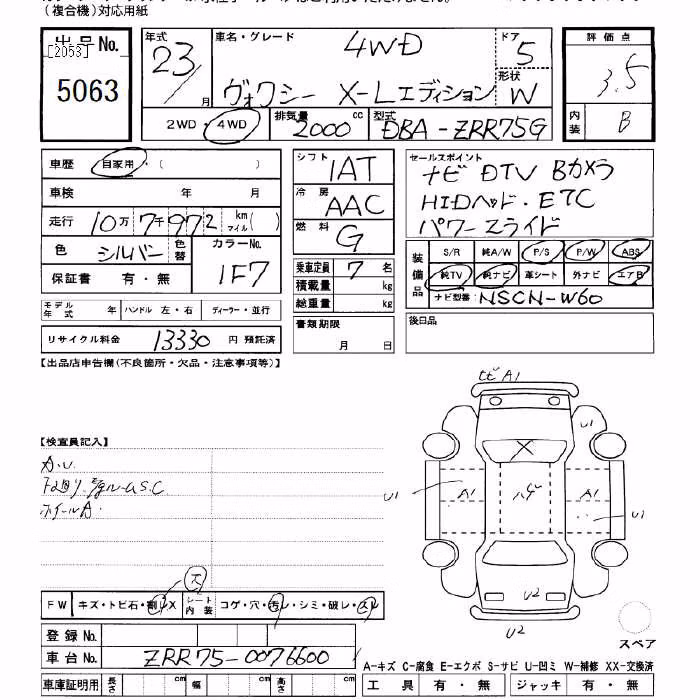 (複合機)対応用紙
出品No.
[2053]
5063
年式
23/
月
車名・グレード
4WD
ヴォクシー X-Lエディション
ドア
5
形状
W
2WD・4WD
排気量
2000
cc
型式
DBA-ZRR75G
評価点
3.5
内装
B
車歴
自家用・(          )
車検
年
月
走行
10万7千972
km
マイル
(   )
色
シルバー
色替
カラーNo.
1F7
保証書
有・無
モデル年式
年
ハンドル 左・右
ディーラー・並行
リサイクル料金
13330
円 預託済
シフト
IAT
冷房
AAC
燃料
G
乗車定員
7
名
積載量
kg
総重量
kg
書類期限
月
日
セールスポイント
ナビ DTV Bカメラ
HIDヘッド・ETC
パワースライド
装備品
S/R
純A/W
P/S
P/W
ABS
純TV
純ナビ
革シート
外ナビ
エアB
ナビ型番
NSCN-W60
後日品
【出品店申告欄(不良箇所・欠品・注意事項等)】
【検査員記入】
A.U
ホイールA
F W
キズ・トビ石・割レX
シート内装
コゲ・穴・汚レ・シミ・破レ・スレ
登録No.
車台No.
ZRR75-0076600
車庫証明用
長さ
cm
幅
cm
高さ
cm
A1
U1
X
U1
A1
ハゲ
A1
U1
U2
U2
スペア
A-キズ C-腐食 E-エクボ S-サビ U-凹ミ W-補修 XX-交換済
工具
有・無
ジャッキ
有・無